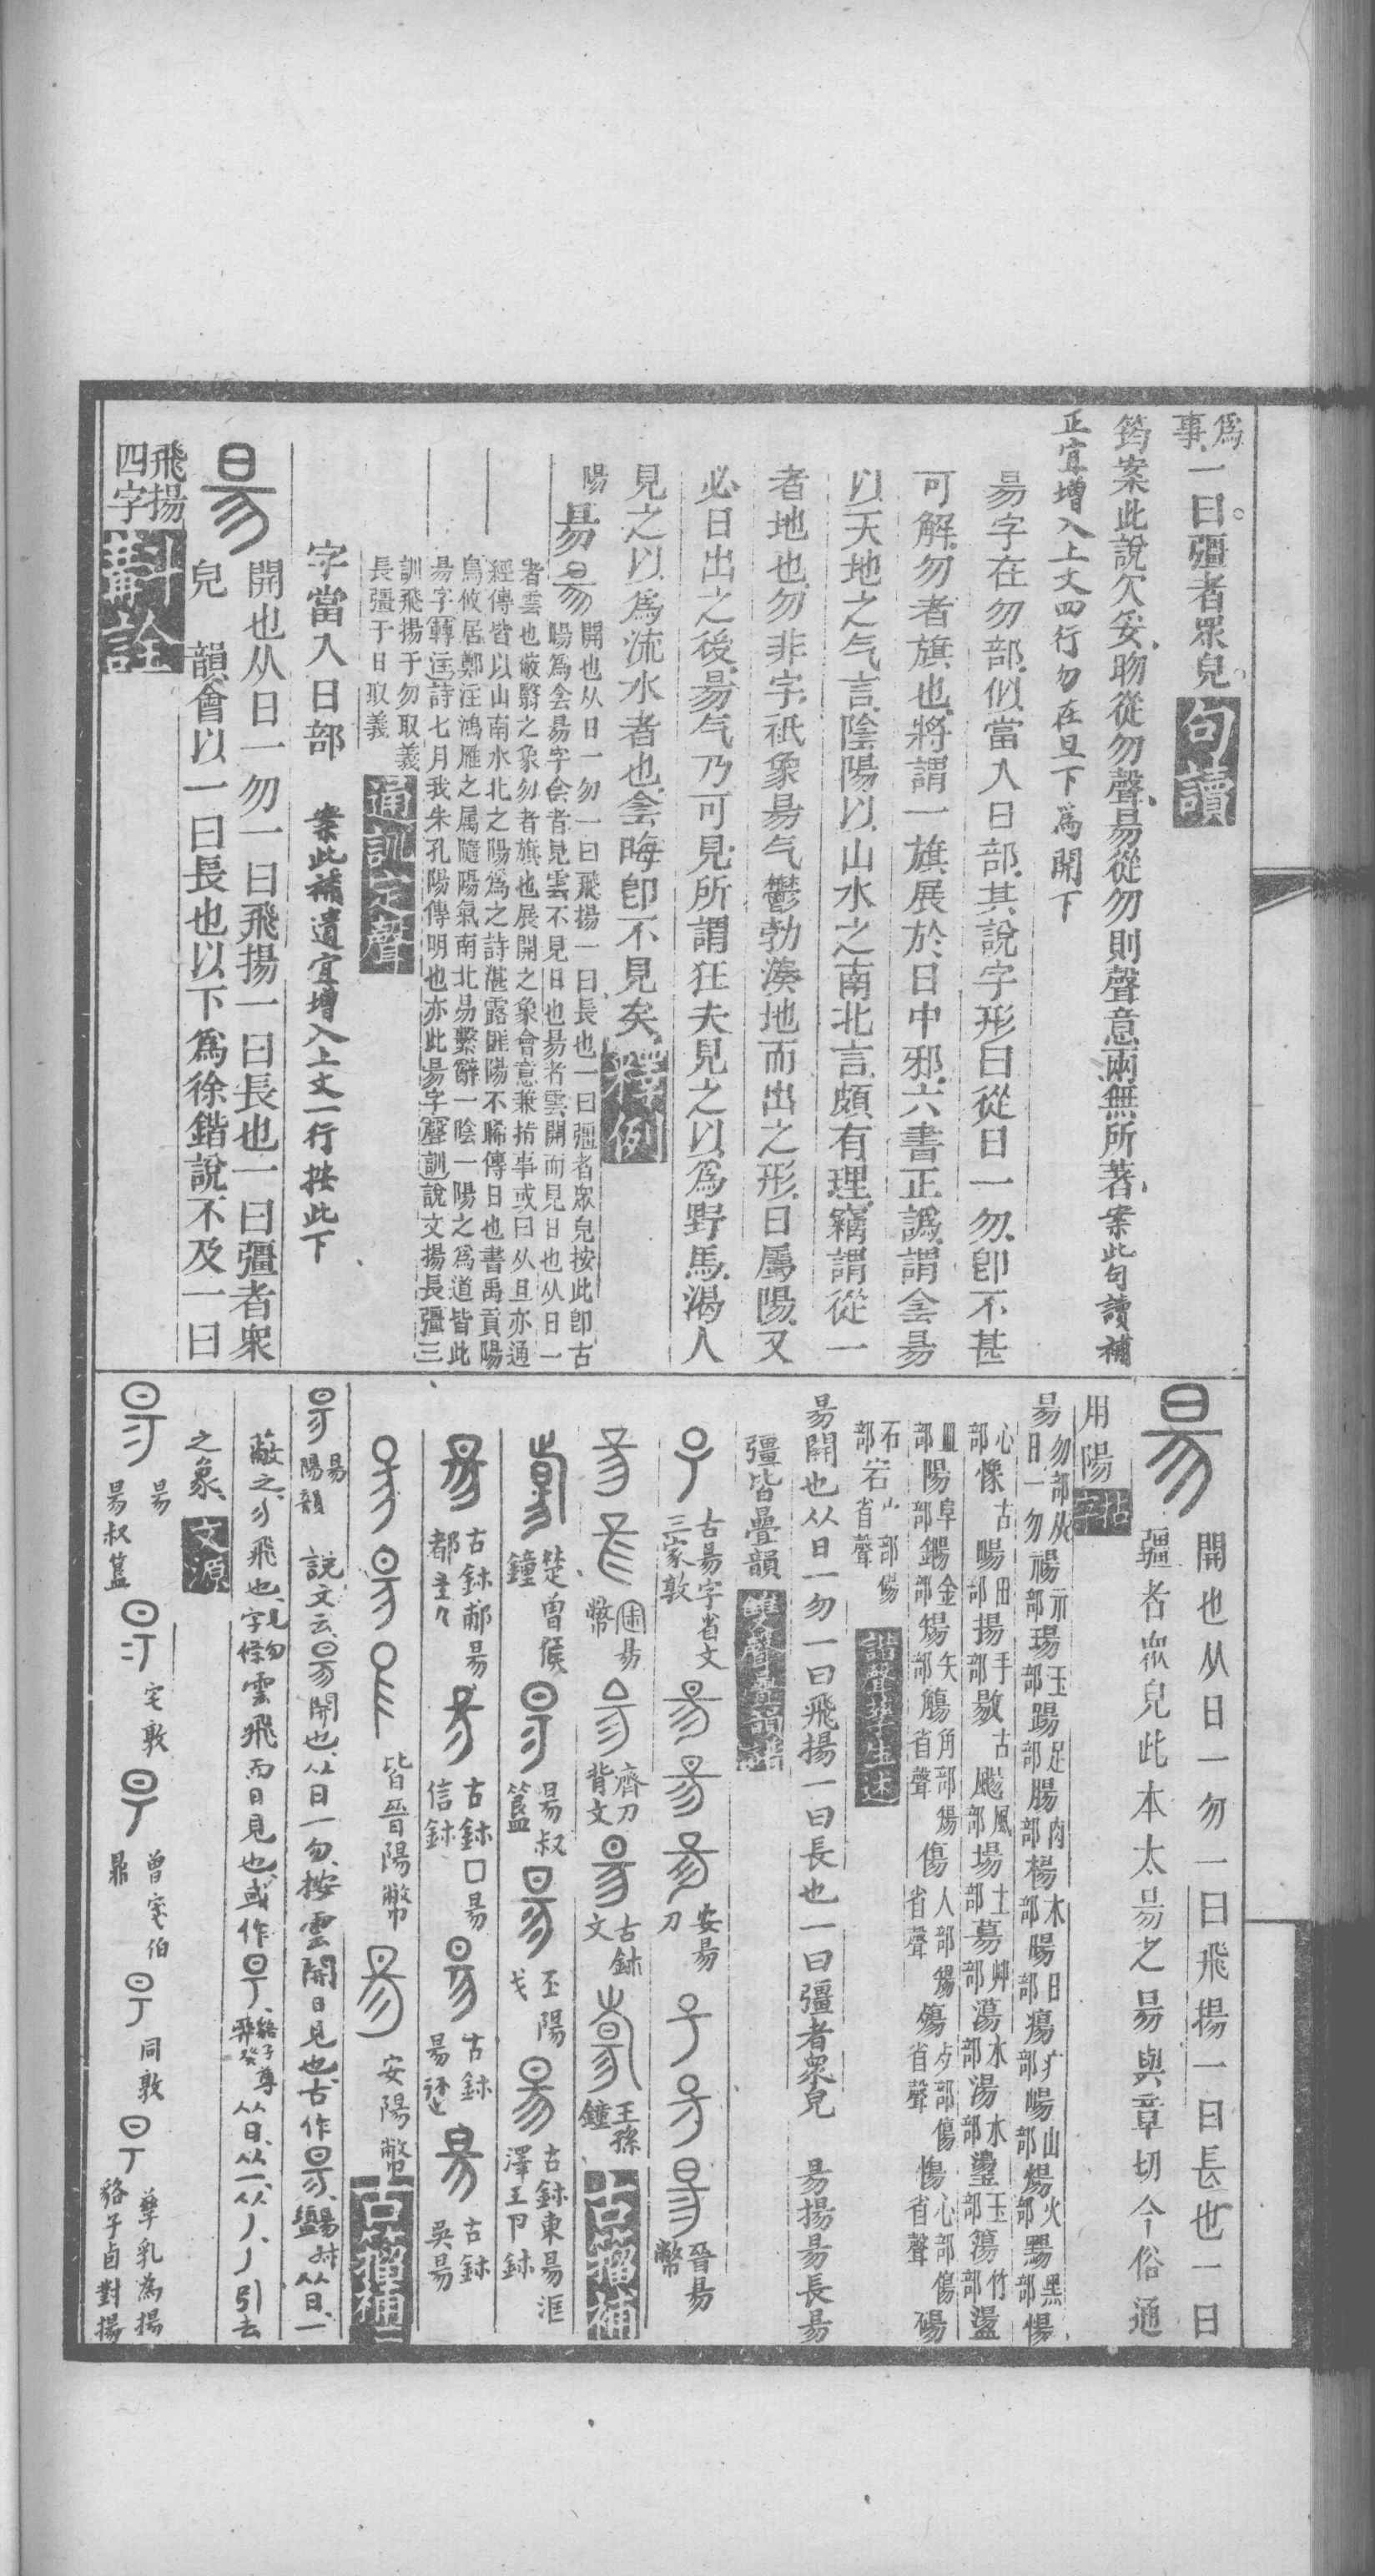 為事一曰彊者眾皃句讀
筠案此說欠妥昒從勿聲昜從勿則聲意兩無所著案此句讀補
正宜增入上文四行勿在旦下為開下
昜字在勿部似當入日部其說字形曰從日一勿卽不甚
可解勿者旗也將謂一旗展於日中邪六書正譌謂侌昜
以天地之气言陰陽以山水之南北言頗有理竊謂從一
者地也勿非字祇象昜气鬱勃湊地而出之形日屬陽又
必日出之後昜气乃可見所謂狂夫見之以為野馬渴人
見之以為流水者也侌晦卽不見矣釋例
陽昜
開也从日一勿一曰飛揚一曰長也一曰彊者眾皃按此卽古
暘為侌昜字侌者見雲不見日也昜者雲開而見日也从日一
者雲也蔽翳之象勿者旗也展開之象會意兼指事或曰从旦亦通
經傳皆以山南水北之陽為之詩湛露匪陽不晞傳日也書禹貢陽
鳥攸居鄭注鴻雁之屬隨陽氣南北易繫辭一陰一陽之為道皆此
昜字轉注詩七月我朱孔陽傳明也亦此昜字聲訓說文揚長彊三
訓飛揚于勿取義
長彊于日取義
通訓定聲
字當入日部 案此補遺宜增入上文一行按此下
開也从日一勿一曰飛揚一曰長也一曰彊者眾
皃 韻會以一曰長也以下為徐鍇說不及一曰
飛揚四字斠詮
昜 開也从日一勿一曰飛揚一曰長也一曰
彊者眾皃此本太昜之昜與章切今俗通
用陽
昜勿部从日一勿 禓示部 瑒玉部 踼足部 腸肉部 楊木部 暘日部 瘍疒部 崵山部 煬火部 黑部 愓
心部 古暘 畼田部 揚手部 古 颺風部 場土部 艸部 蕩水部 湯水部 璗玉部 簜竹部 盪
皿部 陽阜部 鍚金部 矢部 觴角部省聲 傷人部省聲 殤歺部傷省聲 慯心部傷省聲 碭
石部 宕山部碭省聲 諧聲孳生述
昜開也从日一勿一曰飛揚一曰長也一曰彊者眾皃 昜揚昜長昜
彊皆疊韻雙聲疊韻
古昜字省文 三家敦 安昜刀 晉昜幣
昜幣 齊刀背文 古鉨文 王孫鐘 古籀補
楚曾侯鐘 昜叔簋 丕陽戈 古鉨東昜洰澤王卩鉨
古鉨 昜都 古鉨口昜信鉨 古鉨昜 古鉨吳昜
皆晉陽幣 安陽幣 古籀補
昜陽韻 說文云昜開也从日一勿按雲開日見也古作昜 从日一
蔽之勿飛也見勿字條雲飛而日見也或作 貉子尊 从日从一从丿丿引去
之象文源
昜 昜叔簋 宅敦 曾伯鼎 同敦 貉子卣對揚 孳乳為揚